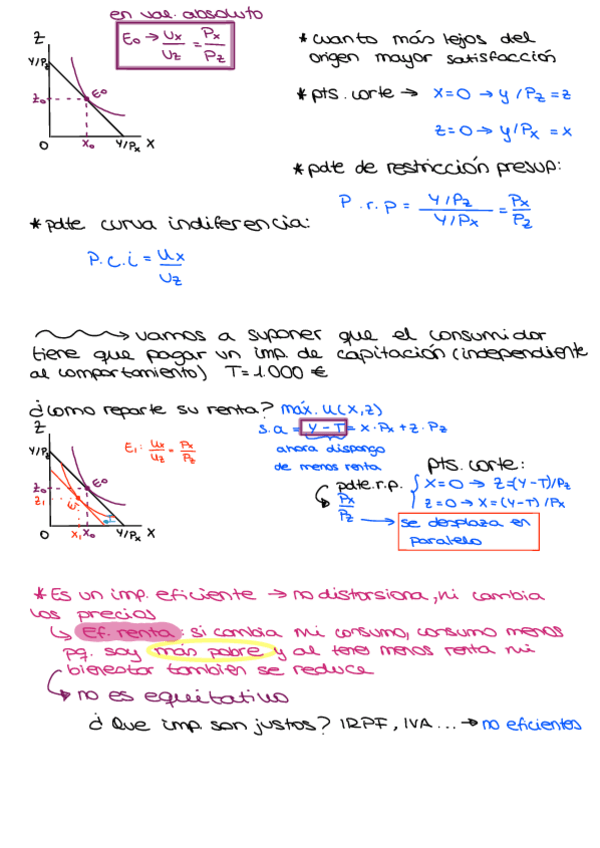 en val. absoluto
E₀ → Ux/Uz = Px/Pz
Z
Y/Pz
E₀
z₀
0
x₀
Y/Px
X
* cuanto más lejos del
origen mayor satisfacción
* pts. corte → x=0 → y/Pz = z
z=0 → y/Px = x
* pdte de restricción presup:
P.r.p = (Y/Pz)/(Y/Px) = Px/Pz
* pdte curva indiferencia:
P.c.i = Ux/Uz
→ vamos a suponer que el consumidor
tiene que pagar un imp. de capitación (independiente
al comportamiento) T=1.000 €
¿Como reparte su renta? máx. U(x,z)
s.a = Y-T = x·Px + z·Pz
ahora dispongo
de menos renta
Z
Y/Pz
E₀
z₀
z₁
E₁
0
x₁
x₀
Y/Px
X
E₁: Ux/Uz = Px/Pz
pts. corte:
x=0 → z=(Y-T)/Pz
z=0 → x=(Y-T)/Px
pdte.r.p.
Px/Pz
→ se desplaza en
paralelo
* Es un imp. eficiente → no distorsiona, ni cambia
los precios
↳ Ef. renta: si cambia mi consumo, consumo menos
pq. soy más pobre y al tener menos renta mi
bienestar también se reduce
↳ no es equitativo
¿Que imp. son justos? IRPF, IVA ... → no eficientes